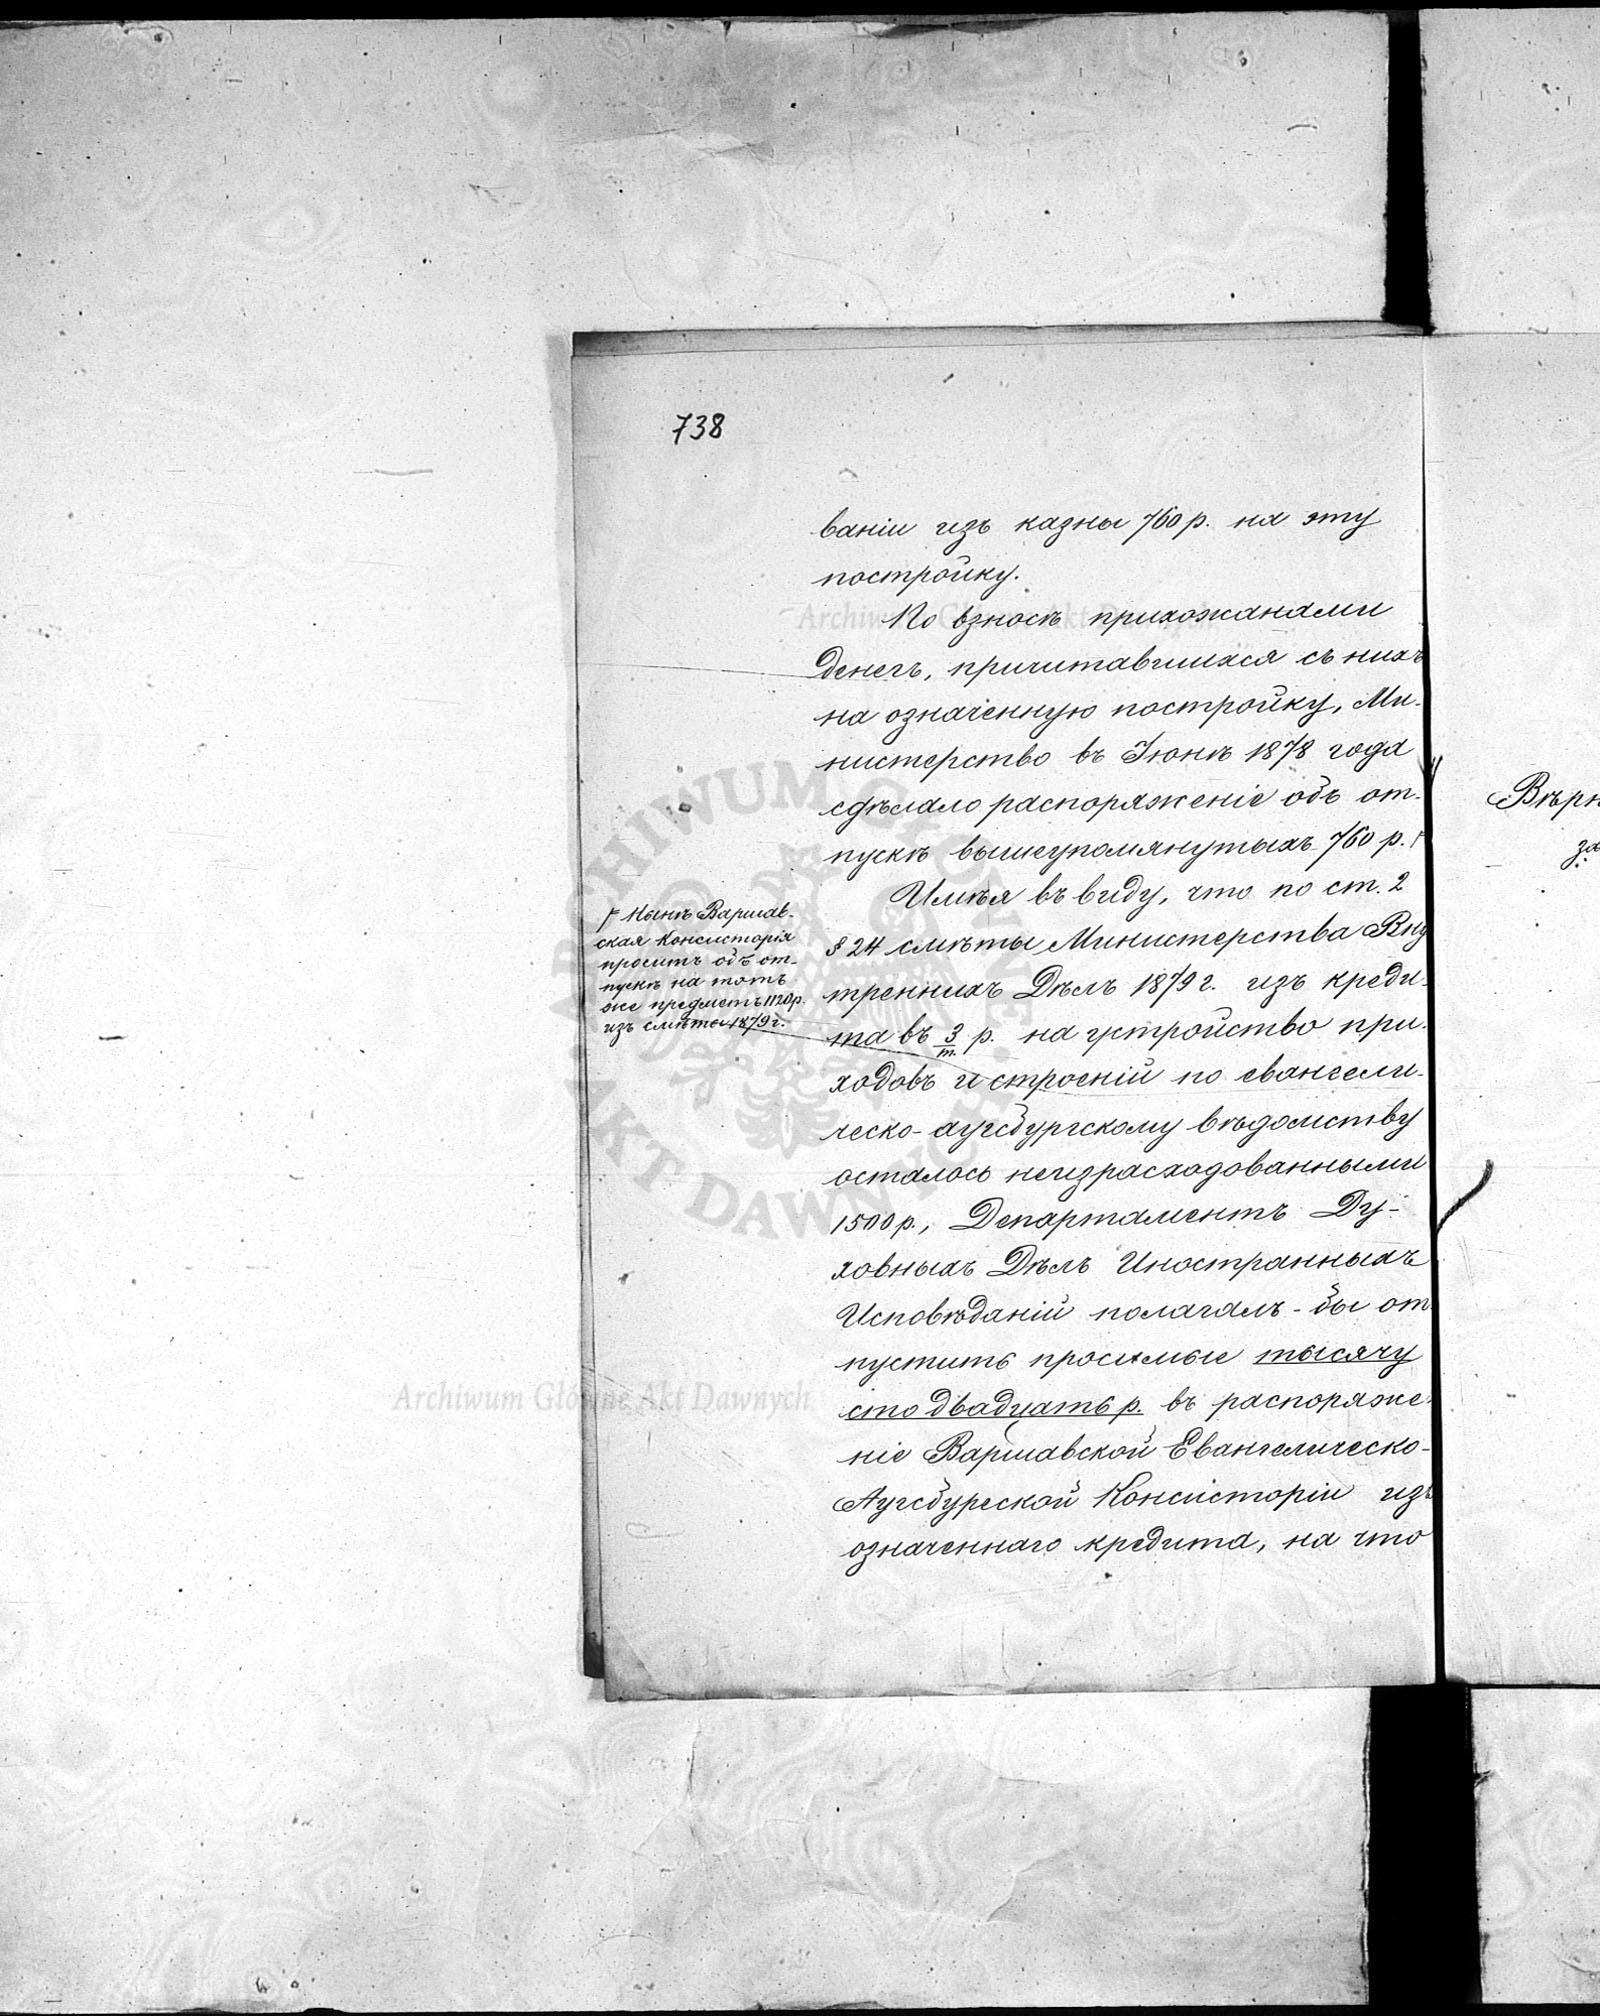 738
ваніи изъ казны 760 р. на эту
постройку.
По взносѣ прихожанами
денегъ, причитавшихся съ нихъ
на означенную постройку, Ми-
нистерство въ Іюнѣ 1878 года
сдѣлало распоряженіе объ от-
пускѣ вышеупомянутыхъ 760 р. Г
Имѣя въ виду, что по ст. 2
§ 24 смѣты Министерства Вну
треннихъ Дѣлъ 1879 г. изъ креди-
та въ 3/т. р. на устройство при-
ходовъ и строеній по евангели-
ческо-аугсбургскому вѣдомству
осталось неизрасходованными
1500 р., Департаментъ Ду-
ховныхъ Дѣлъ Иностранныхъ
Исповѣданій полагалъ-бы от
пустить просимые тысячу
сто двадцать р. въ распоряже-
ніе Варшавской Евангелическо-
Аугсбургской Консисторіи изъ
означеннаго кредита, на что
Г Нынѣ Варшав-
ская Консисторія
проситъ объ от-
пускѣ на тотъ
же предметъ 1120 р.
изъ смѣты 1879 г.
Вѣрн
за
Archiwum Główne Akt Dawnych
Archiwum Główne Akt Dawnych
ARCHIWUM GŁÓWNE AKT DAWNYCH